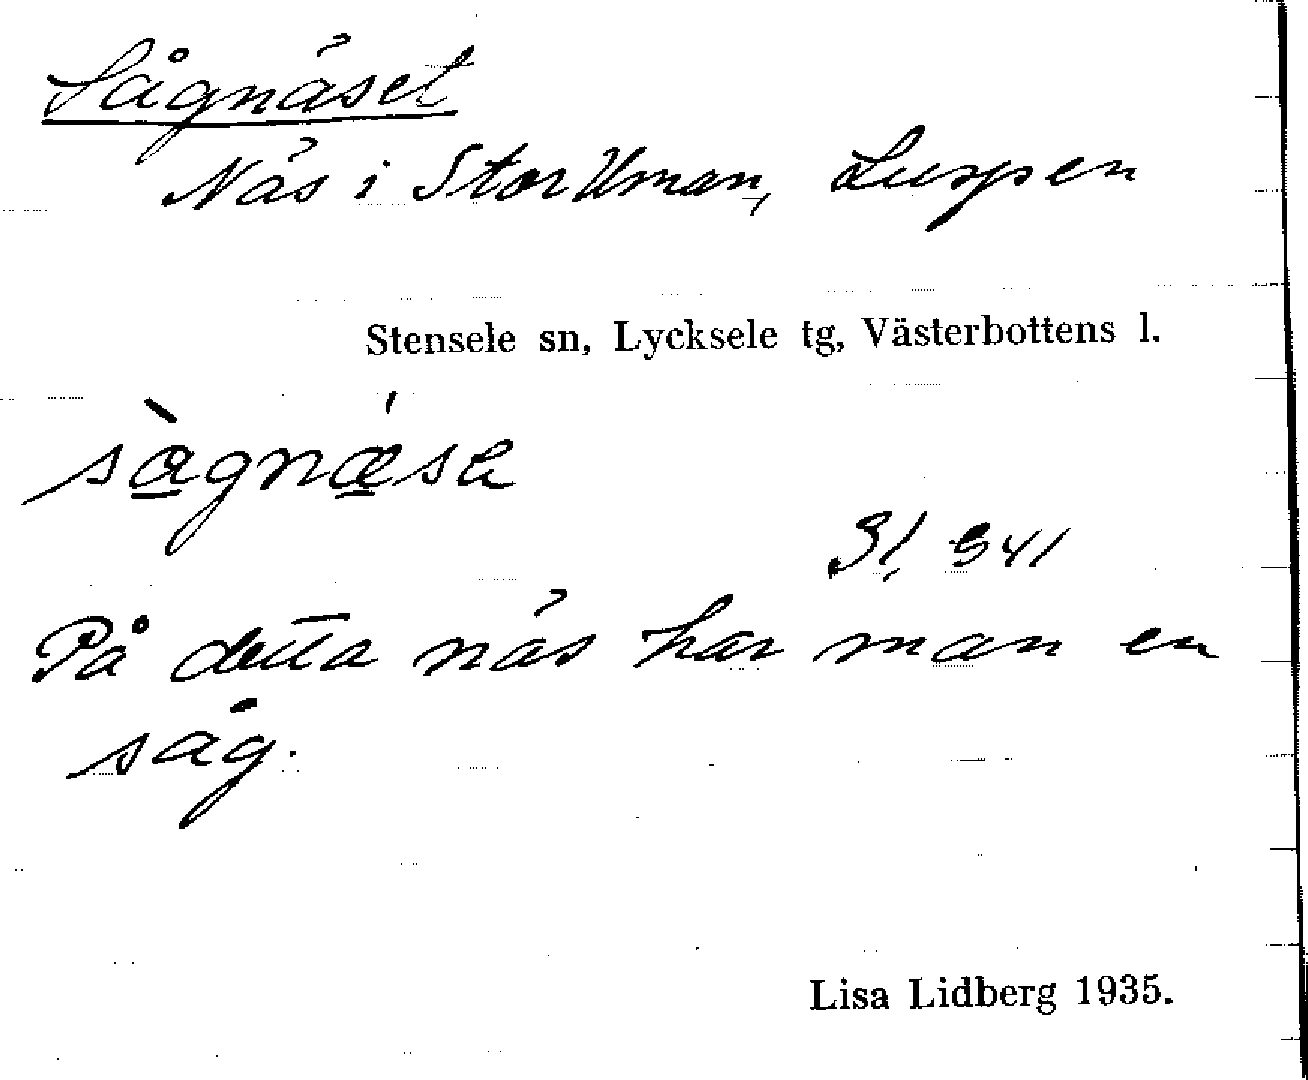 Sågnäset
Näs i Stor Uman, Luspen
Stensele sn, Lycksele tg, Västerbottens l.
På detta näs har man en
såg.
Lisa Lidberg 1935.